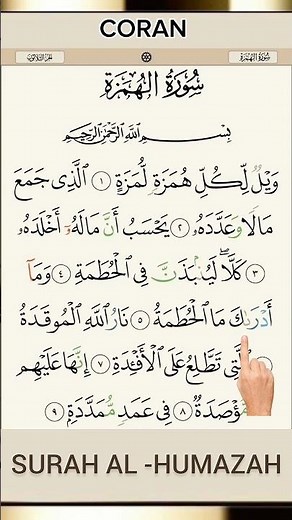 CORAN
سُورَةُ الهُمَزَةِ
الجُزْءُ الثَّلَاثُونَ
سُورَةُ الْهُمَزَةِ
بِسْمِ اللَّهِ الرَّحْمَٰنِ الرَّحِيمِ
وَيْلٌ لِّكُلِّ هُمَزَةٍ لُّمَزَةٍ ١ الَّذِي جَمَعَ
مَالًا وَعَدَّدَهُ ٢ يَحْسَبُ أَنَّ مَالَهُ أَخْلَدَهُ
٣ كَلَّا لَيُنبَذَنَّ فِي الْحُطَمَةِ ٤ وَمَا
أَدْرَاكَ مَا الْحُطَمَةُ ٥ نَارُ اللَّهِ الْمُوقَدَةُ
الَّتِي تَطَّلِعُ عَلَى الْأَفْئِدَةِ ٧ إِنَّهَا عَلَيْهِم
مُّؤْصَدَةٌ ٨ فِي عَمَدٍ مُّمَدَّدَةٍ ٩
SURAH AL -HUMAZAH